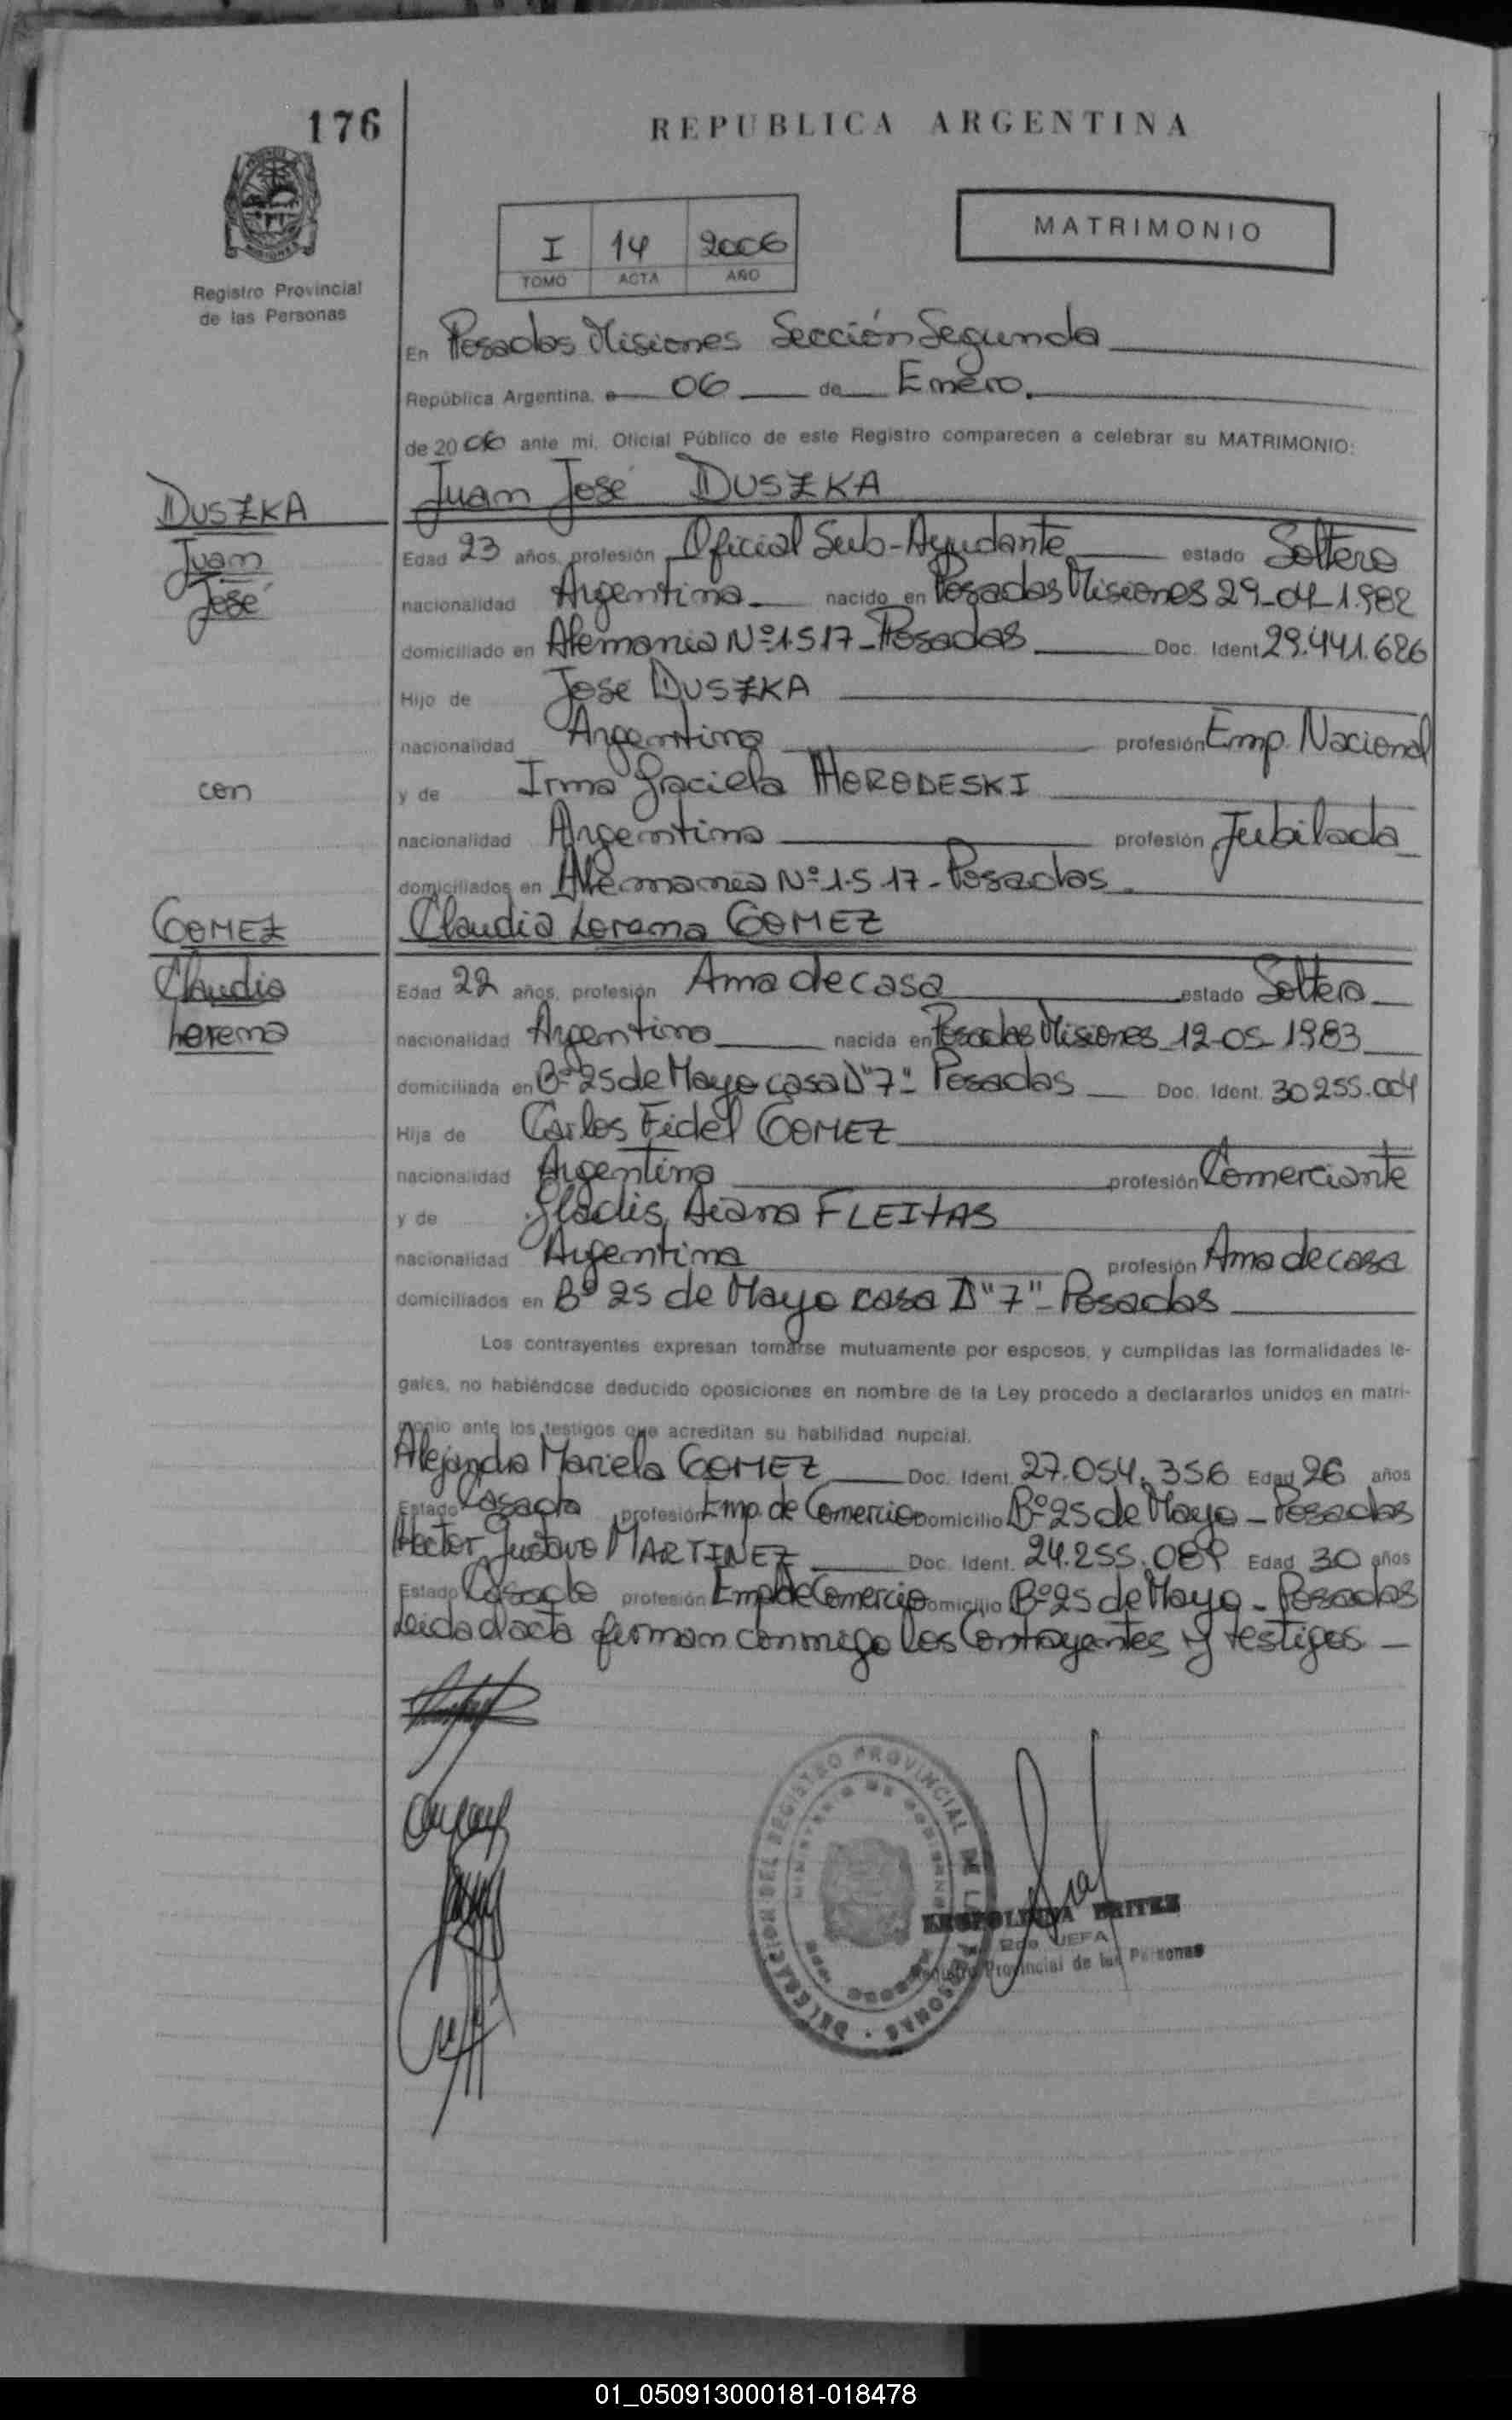 176
REPUBLICA ARGENTINA
MATRIMONIO
I 14 2006
TOMO ACTA AÑO
Registro Provincial
de las Personas
En Posadas Misiones Sección Segunda
República Argentina, a 06 de Enero.
de 2006 ante mi, Oficial Público de este Registro comparecen a celebrar su MATRIMONIO:
DUSZKA
Juan
José
Juan José DUSZKA
Edad 23 años, profesión Oficial Sub-Ayudante estado Soltero
nacionalidad Argentina nacido en Posadas Misiones 29-04-1.982
domiciliado en Alemania Nº 1517-Posadas Doc. Ident 29.441.686
Hijo de José DUSZKA
nacionalidad Argentina profesión Emp. Nacional
con
y de Irma Graciela HORODESKI
nacionalidad Argentina profesión Jubilada
domiciliados en Alemania Nº 1.517-Posadas.
GOMEZ
Claudia
Lorena
Claudia Lorena GOMEZ
Edad 22 años, profesión Ama de casa estado Soltera
nacionalidad Argentina nacida en Posadas Misiones 12-05-1983
domiciliada en Bº 25 de Mayo casa D"7"- Posadas Doc. Ident. 30255.004
Hija de Carlos Fidel GOMEZ
nacionalidad Argentina profesión Comerciante
y de Gladis Diana FLEITAS
nacionalidad Argentina profesión Ama de casa
domiciliados en Bº 25 de Mayo casa D"7"-Posadas
Los contrayentes expresan tomarse mutuamente por esposos, y cumplidas las formalidades le-
gales, no habiéndose deducido oposiciones en nombre de la Ley procedo a declararlos unidos en matri-
monio ante los testigos que acreditan su habilidad nupcial.
Alejandra Mariela GOMEZ Doc. Ident. 27.054.356 Edad 26 años
Estado Casada profesión Emp. de Comercio Domicilio Bº 25 de Mayo - Posadas
Hector Gustavo MARTINEZ Doc. Ident. 24.255.089 Edad 30 años
Estado Casado profesión Emp de Comercio Domicilio Bº 25 de Mayo - Posadas
Leida el acta firman conmigo los Contrayentes y testigos -
DELEGACION DEL REGISTRO PROVINCIAL DE LAS PERSONAS
MINISTERIO DE GOBIERNO
LEOPOLDINA BRITEZ
2da JEFA
Registro Provincial de las Personas
01_050913000181-018478